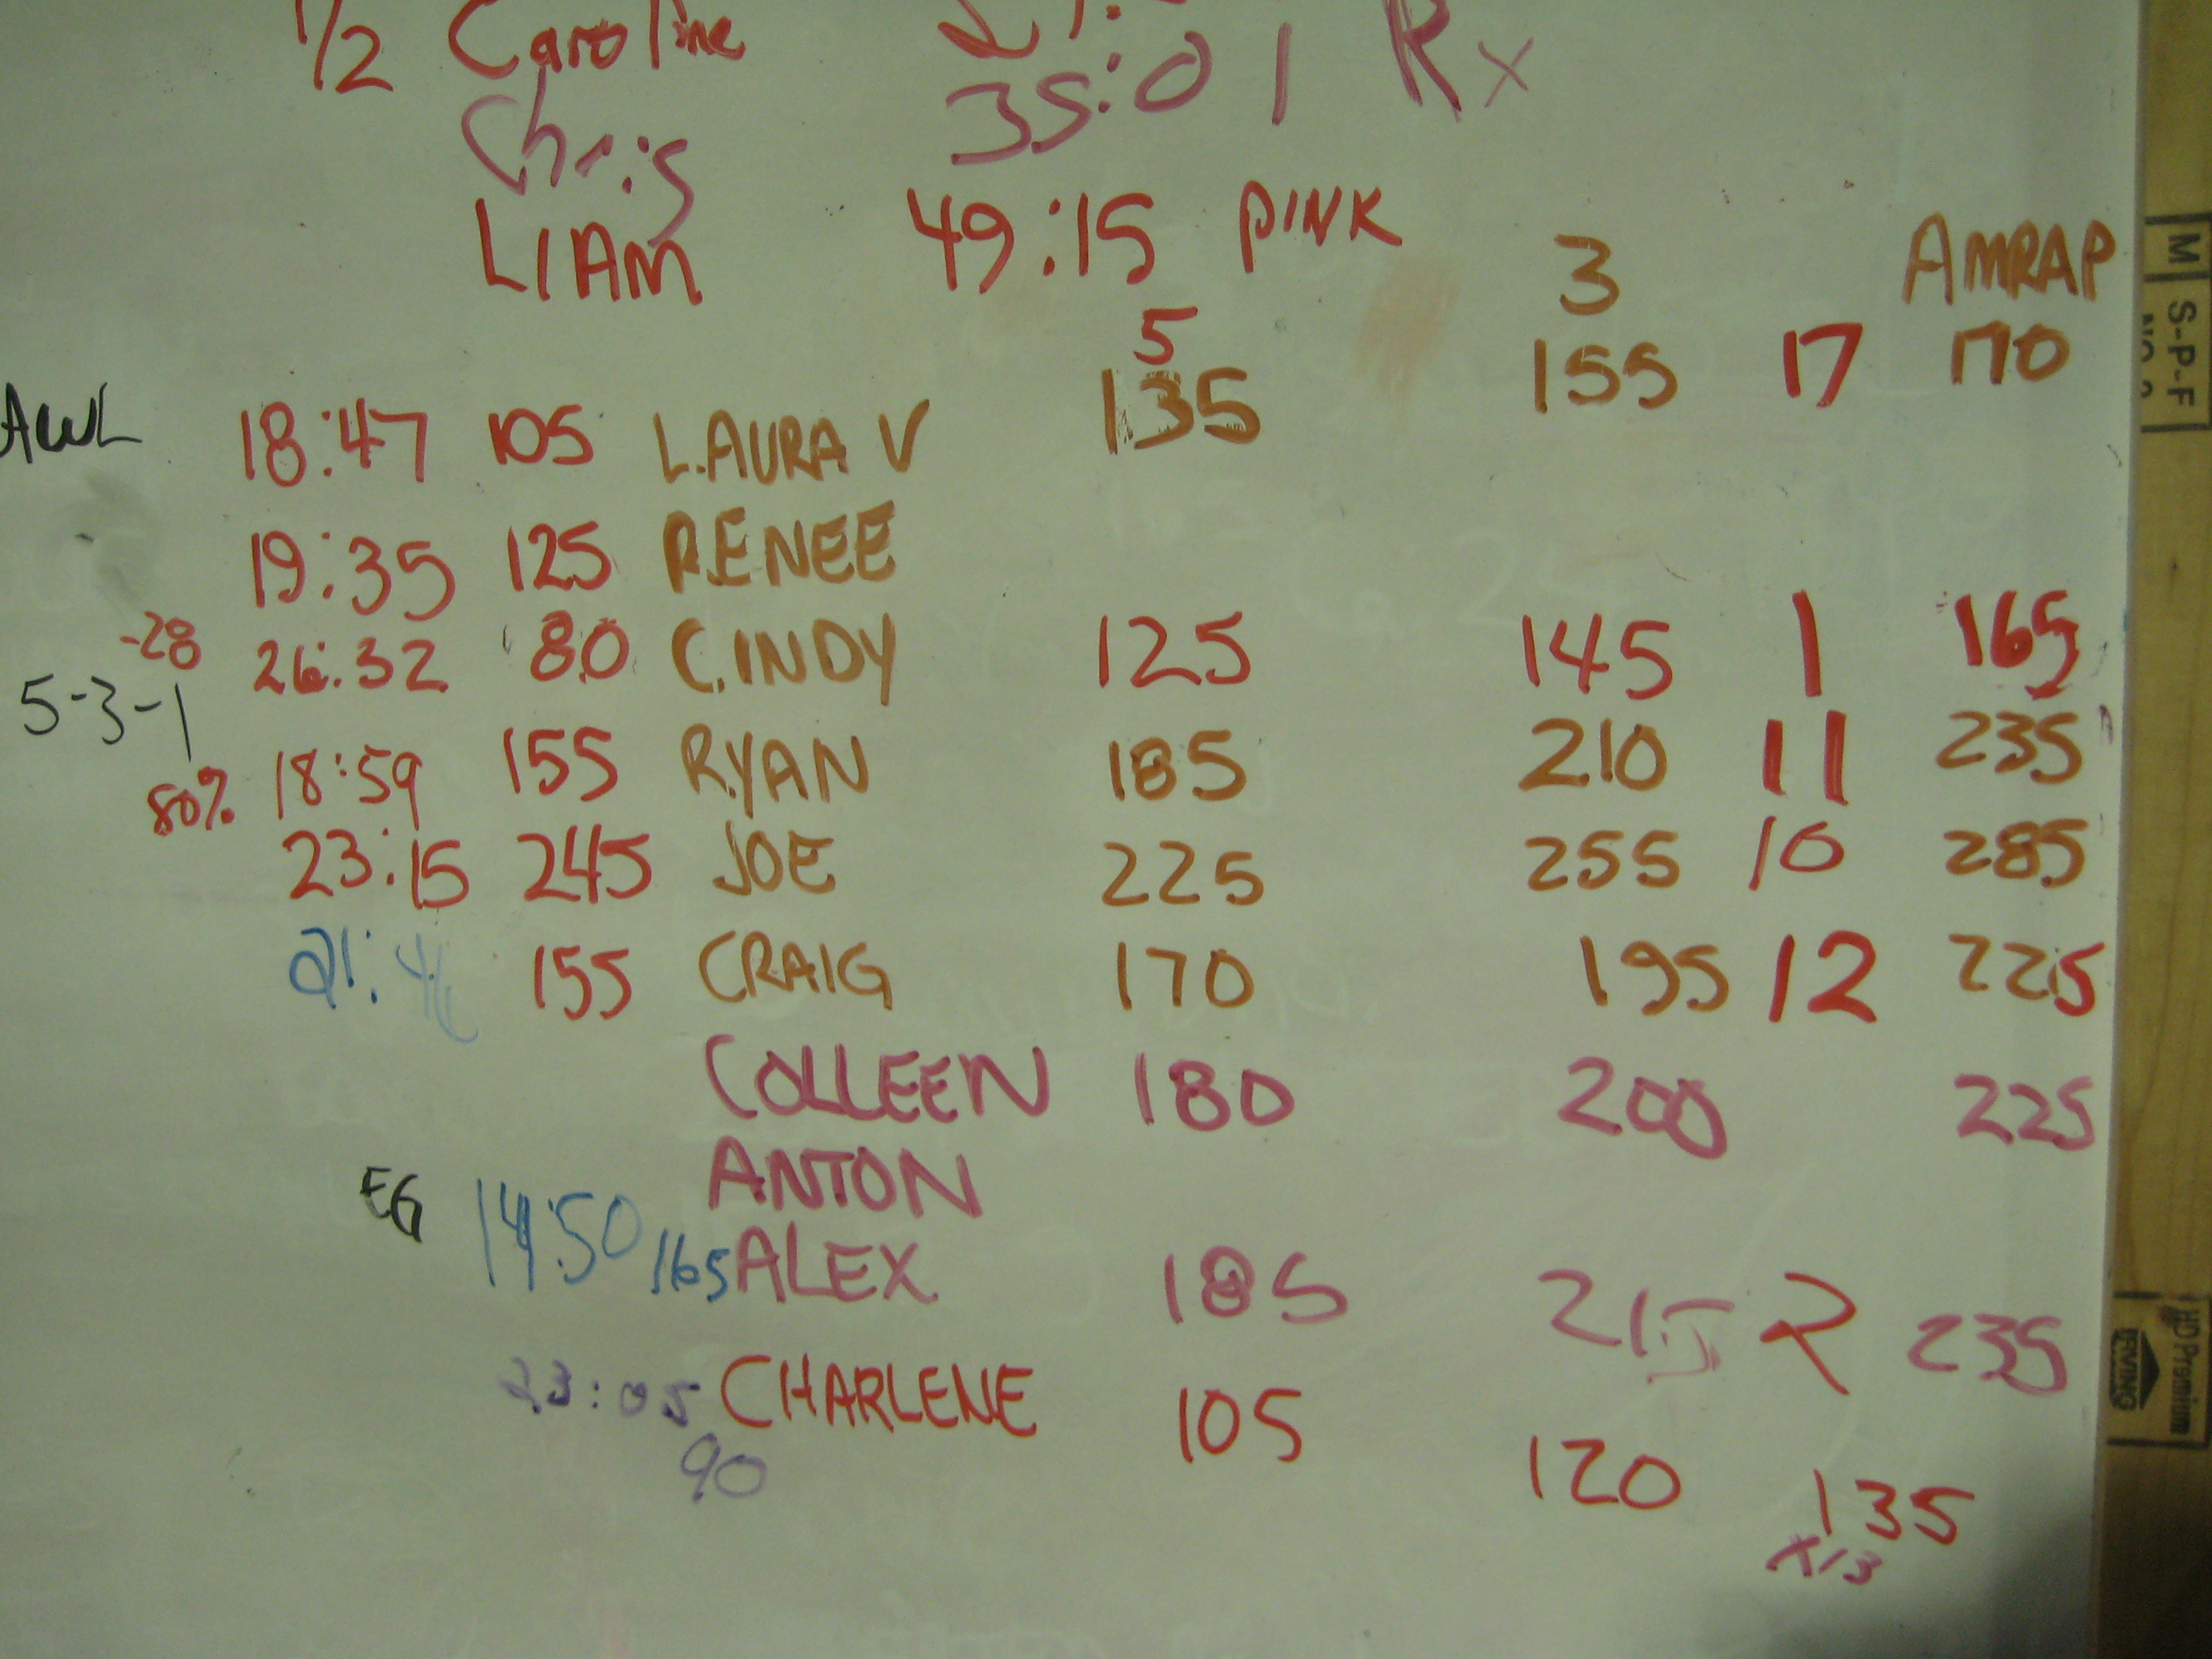 1/2 Caroline
Chris 35:01 Rx
LIAM 49:15 PINK
5 3 AMRAP
AWL 18:47 105 LAURA V 135 155 17 170
19:35 125 RENEE
-28 26:32 80 CINDY 125 145 1 165
5-3-1
80% 18:59 155 RYAN 185 210 11 235
23:15 245 JOE 225 255 10 285
21: 155 CRAIG 170 195 12 225
COLLEEN 180 200 225
ANTON
EG 14:50 165 ALEX 185 215 2 235
23:05 CHARLENE 105 120 135
90 x13
M S-P-F
HD Premium
IRVING